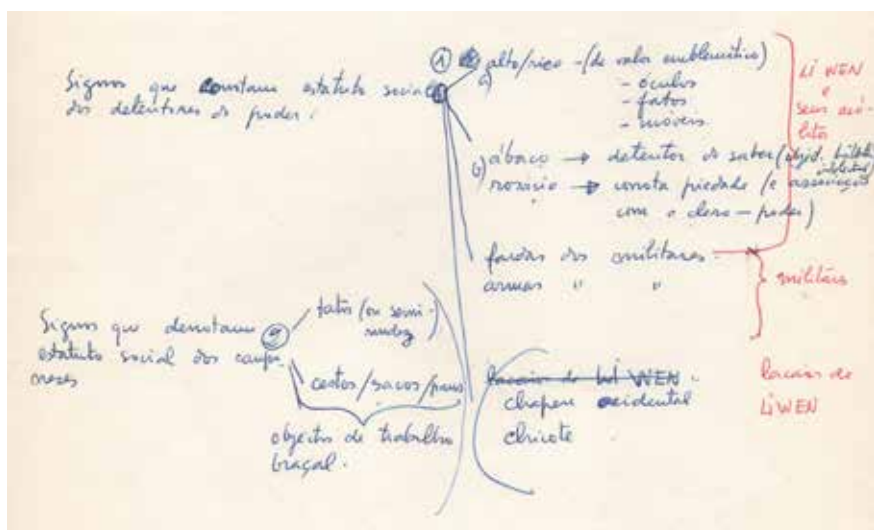 Signos que conotam estatuto social
dos detentores do poder.
1
a) alto/rico - (de valor emblemático)
- óculos
- fatos
- móveis
b) ábaco → detentor do saber (
rosário → conota piedade (e associação
com o clero - poder)
fardas dos militares
armas " "
LI WEN
e
seus acó-
litos
militares
Signos que denotam
estatuto social dos campo-
neses
2
fatos (ou semi-
nudez)
cestos/sacos/paus
objectos de trabalho
braçal.
lacaios de LI WEN.
chapeu ocidental
chicote
lacaios de
LI WEN